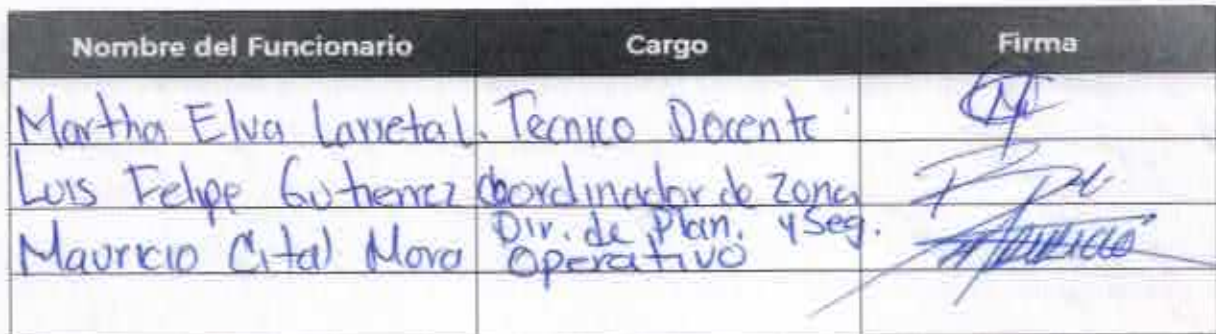 Nombre del Funcionario Cargo Firma
Martha Elva Larretal. Tecnico Docente
Luis Felipe Gutierrez Coordinador de Zona
Mauricio Cital Mora Dir. de Plan. y Seg. Operativo Mauricio